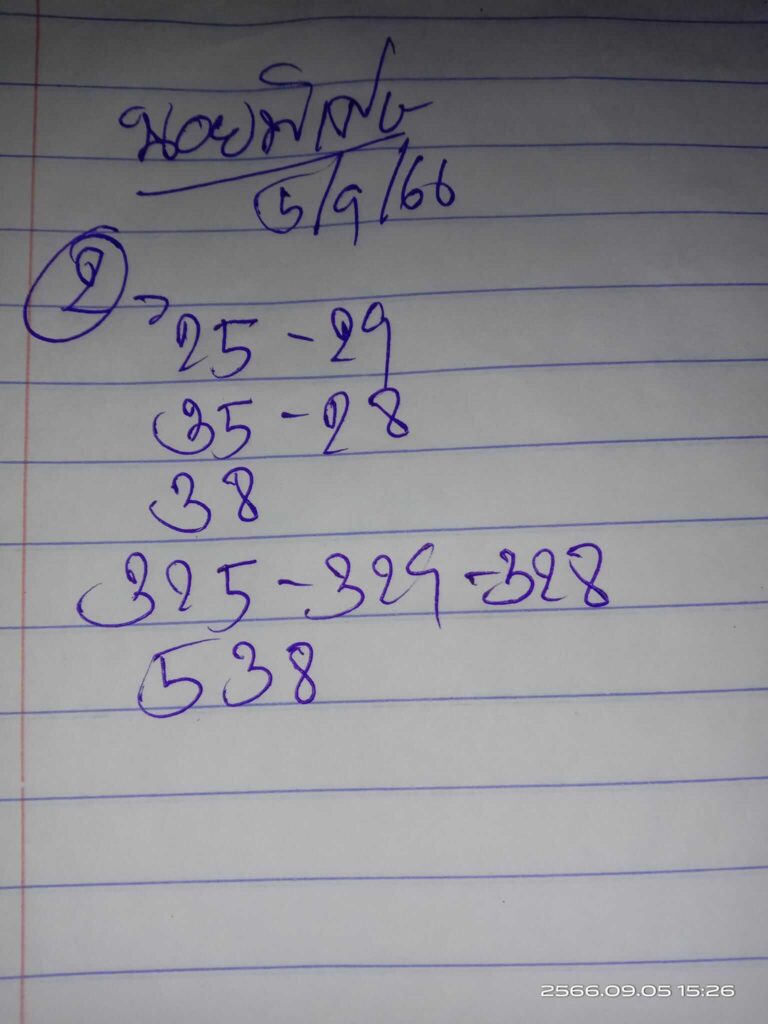 นอยพิเศษ
5/9/66
2 25 - 29
35 - 28
38
325 - 329 - 328
538
2566.09.05 15:26